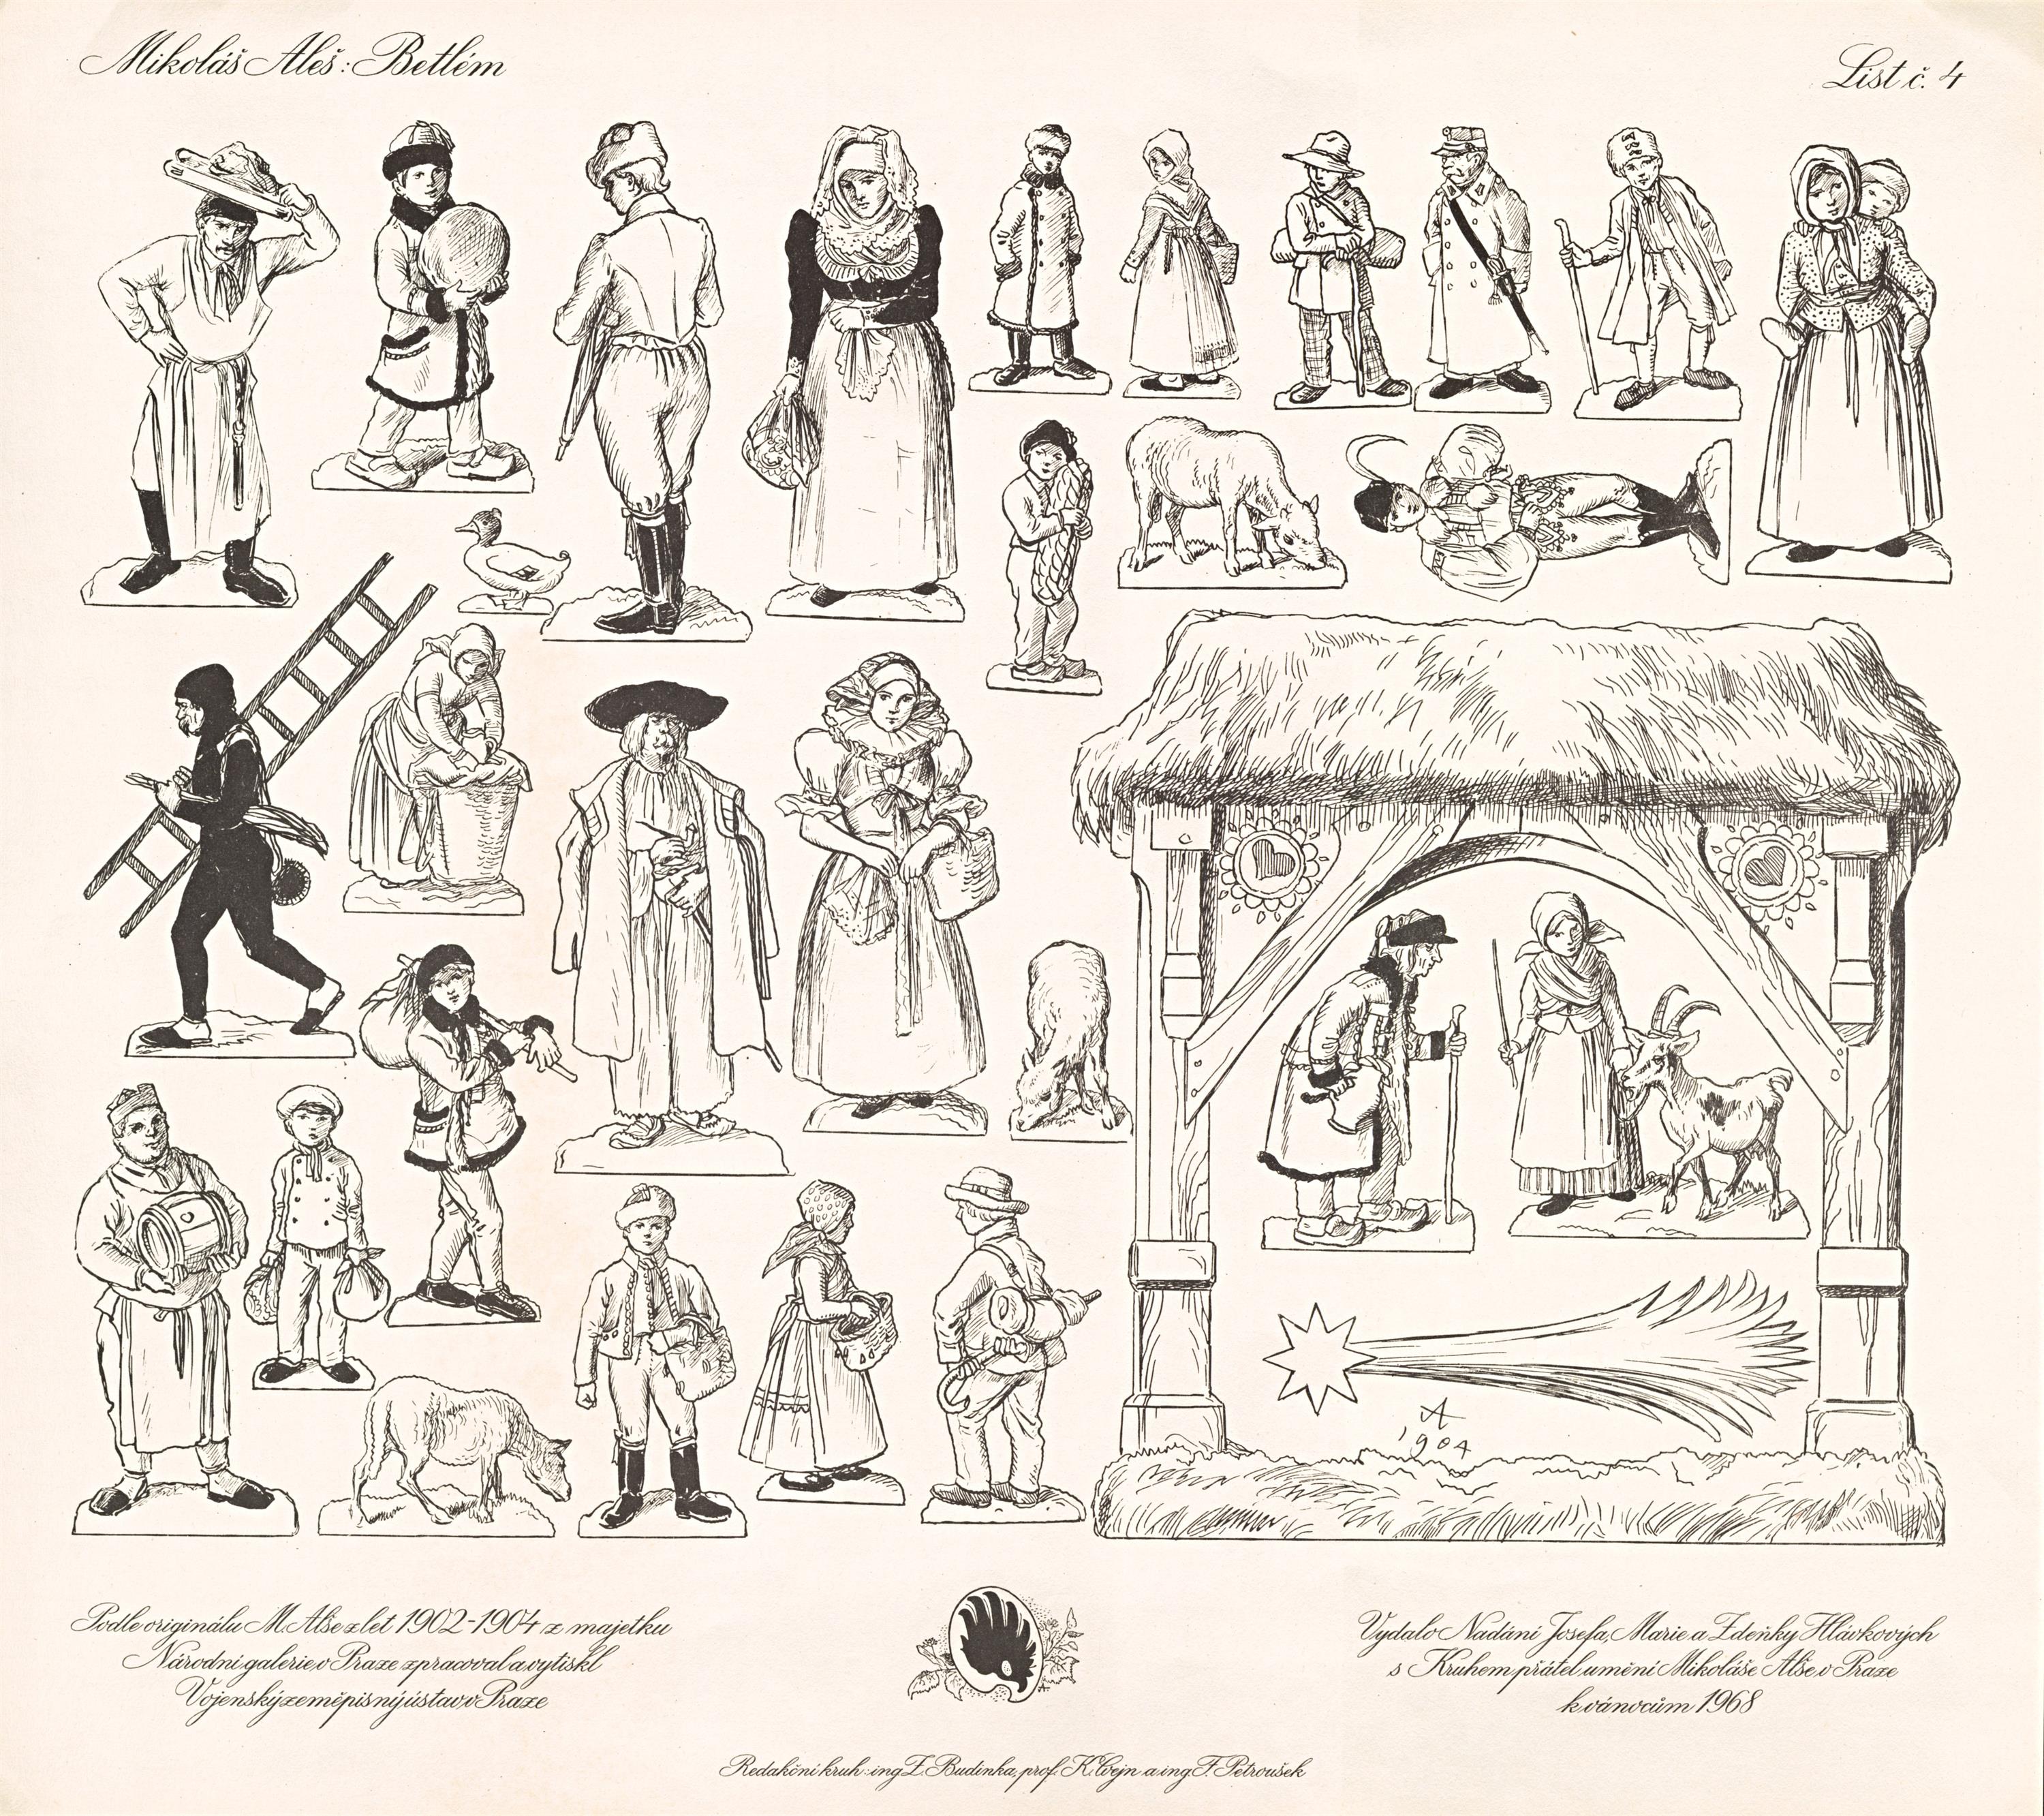 Mikoláš Aleš: Betlém
List č. 4
A
1904
Podle originálu M. Alše z let 1902-1904 z majetku
Národní galerie v Praze zpracoval a vytiskl
Vojenský zeměpisný ústav v Praze
Vydalo Nadání Josefa, Marie a Zdeňky Hlávkových
s Kruhem přátel umění Mikoláše Alše v Praze
k vánocům 1968
Redakční kruh: ing Z. Budinka, prof. K. Cvejn a ing F. Petroušek